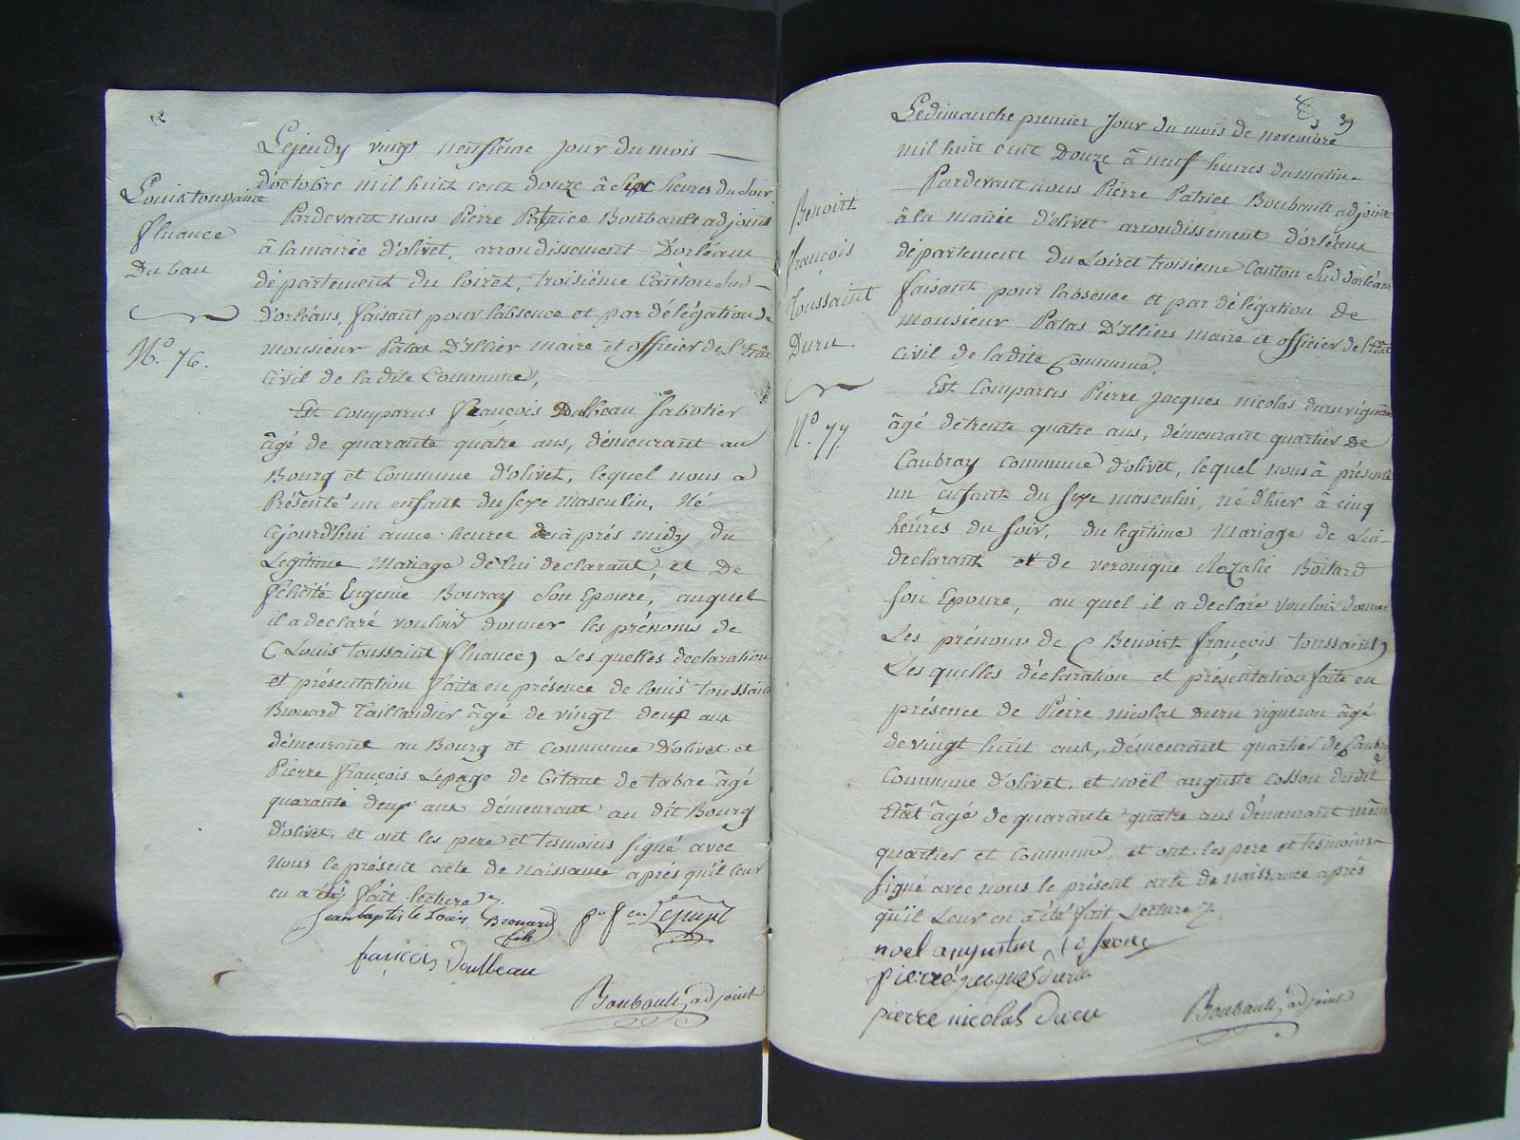 Le jeudy vingt neufième jour du mois
d'octobre mil huit cent douze à sept heures du soir
Pardevant nous Pierre Patrice Boubault adjoint
à la mairie d'olivet, arrondissement D'orléans
département du loiret, troisième Canton Sud
D'orléans, faisant pour l'absence et par délégation de
monsieur Patas D'Illier maire et officier de l'Etât
civil de la dite Commune,
Louis toussaint
fluance
Du bau
N.º 76.
Est comparus françois Dulbeau Sabotier
âgé de quarante quâtre ans, démeurant au
Bourg et Commune d'olivet, lequel nous a
Présenté un enfant du sexe masculin, Né
cejourd'hui à une heure de après midy du
Legitime Mariage de lui declarant, et De
félicité Eugenie Bouray Son Epouse, auquel
il a declaré vouloir donner les prénoms de
( Louis toussaint fluance ) Les quelles declaration
et présentation faite en présence de louis toussaint
Brouard Taillandier âgé de vingt deux ans
démeurant au Bourg et commune d'olivet et
Pierre françois Lepage De bitant de tabac âgé
quarante deux ans démeurant au dit Bourg
d'olivet, et ont les pere et tesmoins signé avec
nous le présent acte de naissance après qu'il leur
en a été fait lecture
Jean baptiste Louis Brouard
fils
françois Doulbeau
Boubault, adjoint
39
Le dimanche premier Jour du mois de novembre
mil huit cent Douze à neuf heures du matin
Pardevant nous Pierre Patrice Boubault adjoint
à la mairie d'olivet arrondissement d'orléans
département du Loiret troisieme Canton Sud d'orléans
faisant pour labsence et par délégation de
monsieur Patas D'Illiers maire et officier de l'état
civil de la dite Commune.
Benoist
françois
Toussaint
Duru
N.º 77
Est Comparus Pierre jacques nicolas duru vigneron
âgé de trente quatre ans, démeurant quartier De
Caubray commune d'olivet, lequel nous à présenté
un enfant du sexe masculin, né d'hier à cinq
heures du soir, du legitime Mariage de Lui
declarant et de veronique Rozalie Boitard
son Epouse, au quel il a declaré vouloir donner
Les prénoms de ( Benoist françois toussaint )
Les quelles déclaration et présentation faite en
présence de Pierre nicolas duru vigneron âgé
de vingt huit ans, démeurant quartier de Caubray
Commune d'olivet, et noël auguste cosson dudit
Etât âgé de quarante quatre ans démeurant même
quartier et commune, et ont les pere et tesmoins
signé avec nous le présent acte de naissance après
qu'il Leur en a été fait Lecture
pierre jacques duru
pierre nicolas duru
Boubault, adjoint